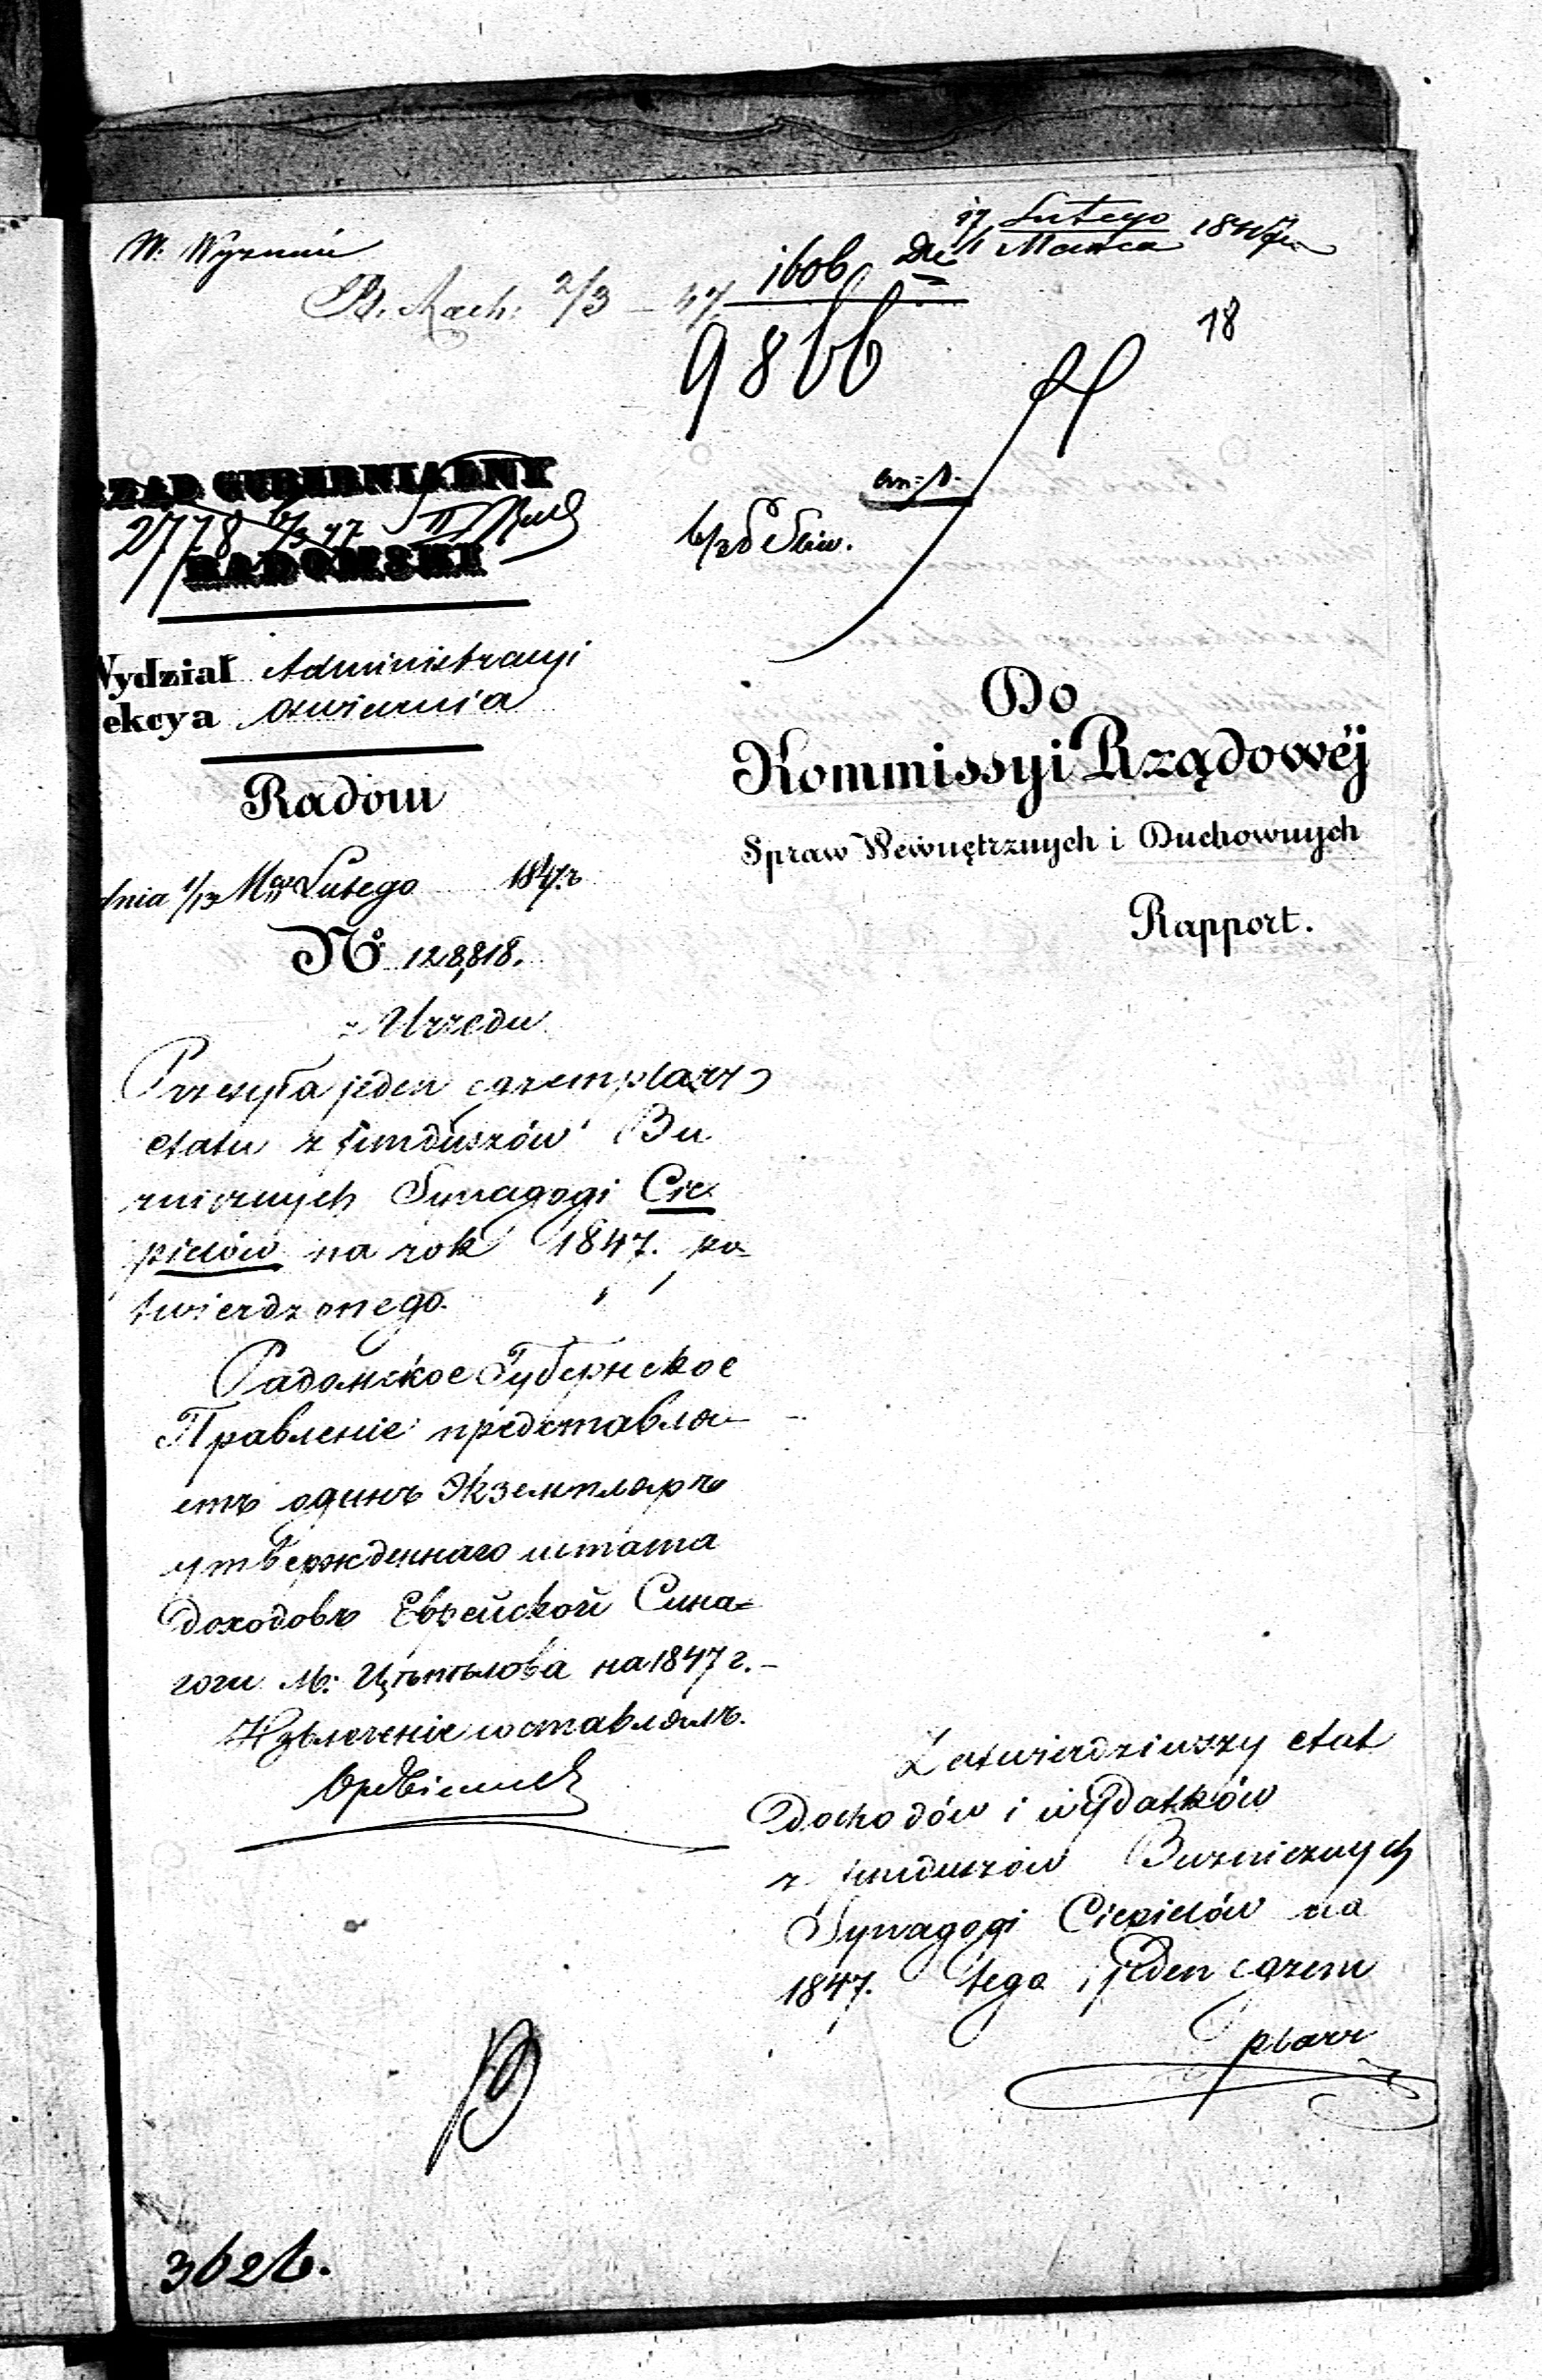 W. Wyznań
B. Rach: 2/3 – 47
1606 Dnia 17 Lutego / 1 Marca 1847
9866
18
RZĄD GUBERNIALNY
2778 6/3 47
RADOMSKI
Wydział Administracyi
Sekcya Wyznań
Radom
dnia 1/13 Mca Lutego 1847 r
No 128,818.
z Urzędu
Przesyła jeden egzemplarz
etatu z funduszów Bu
znicznych Synagogi Cie
pielów na rok 1847. po
twierdzonego.
Радомское Губернское
Правленіе представля-
етъ одинъ Экземпляръ
утвержденнаго штата
доходовъ Еврейской Сина=
гоги М: Цѣпѣлова на 1847 г.-
Извлеченіе составлялъ.
Do
Kommissyi Rządowéj
Spraw Wewnętrznych i Duchownych
Rapport.
Zatwierdziwszy etat
Dochodów i wydatków
z funduszów Buznicznych
Synagogi Ciepielów na
1847. tego jeden egzem
plarz
3626.